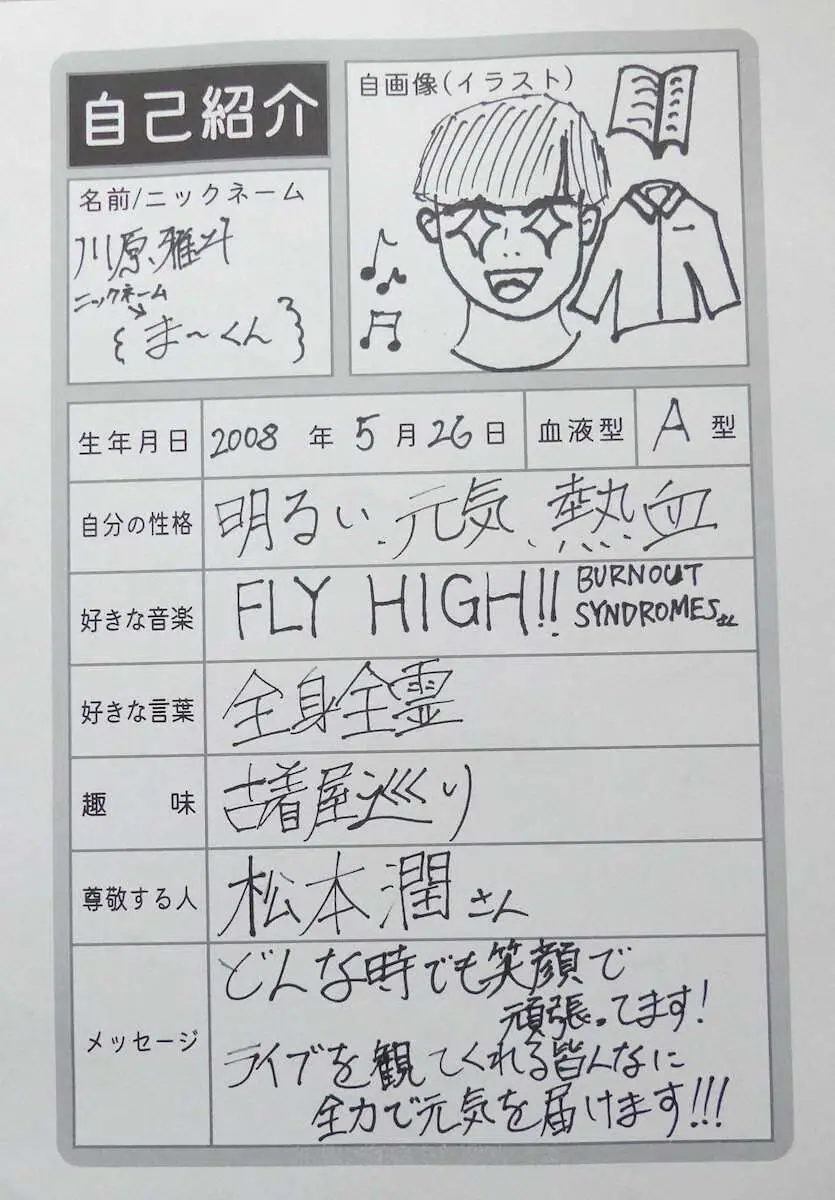 自己紹介
自画像(イラスト)
名前/ニックネーム
川原雅斗
ニックネーム
{ま〜くん}
生年月日 2008 年 5 月 26 日 血液型 A 型
自分の性格 明るい、元気、熱血
好きな音楽 FLY HIGH!! BURNOUT
SYNDROMES
好きな言葉 全身全霊
趣味 古着屋巡り
尊敬する人 松本潤さん
メッセージ
どんな時でも笑顔で
頑張ってます!
ライブを観てくれる皆んなに
全力で元気を届けます!!!